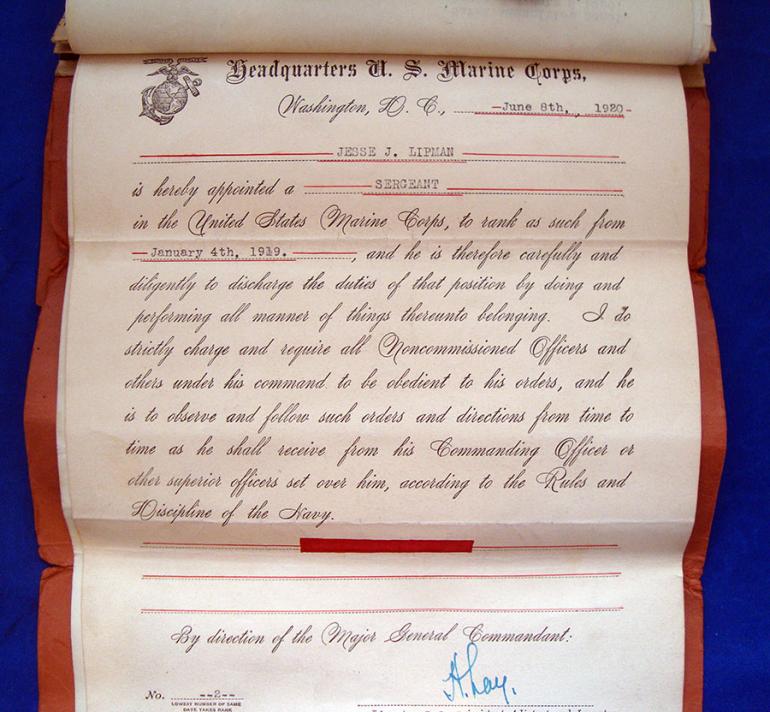 Headquarters U. S. Marine Corps,
Washington, D. C., June 8th, , 1920
JESSE J. LIPMAN
is hereby appointed a SERGEANT
in the United States Marine Corps, to rank as such from
January 4th, 1919. , and he is therefore carefully and
diligently to discharge the duties of that position by doing and
performing all manner of things thereunto belonging. I do
strictly charge and require all Noncommissioned Officers and
others under his command to be obedient to his orders, and he
is to observe and follow such orders and directions from time to
time as he shall receive from his Commanding Officer or
other superior officers set over him, according to the Rules and
Discipline of the Navy.
By direction of the Major General Commandant:
H. Lay.
No. --2--
LOWEST NUMBER OF SAME
DATE TAKES RANK